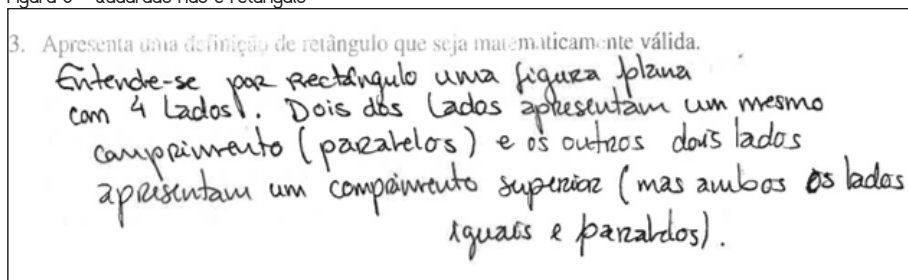 3. Apresenta uma definição de retângulo que seja matematicamente válida.
Entende-se por Rectângulo uma figura plana
com 4 lados. Dois dos lados apresentam um mesmo
comprimento (paralelos) e os outros dois lados
apresentam um comprimento superior (mas ambos os lados
iguais e paralelos).